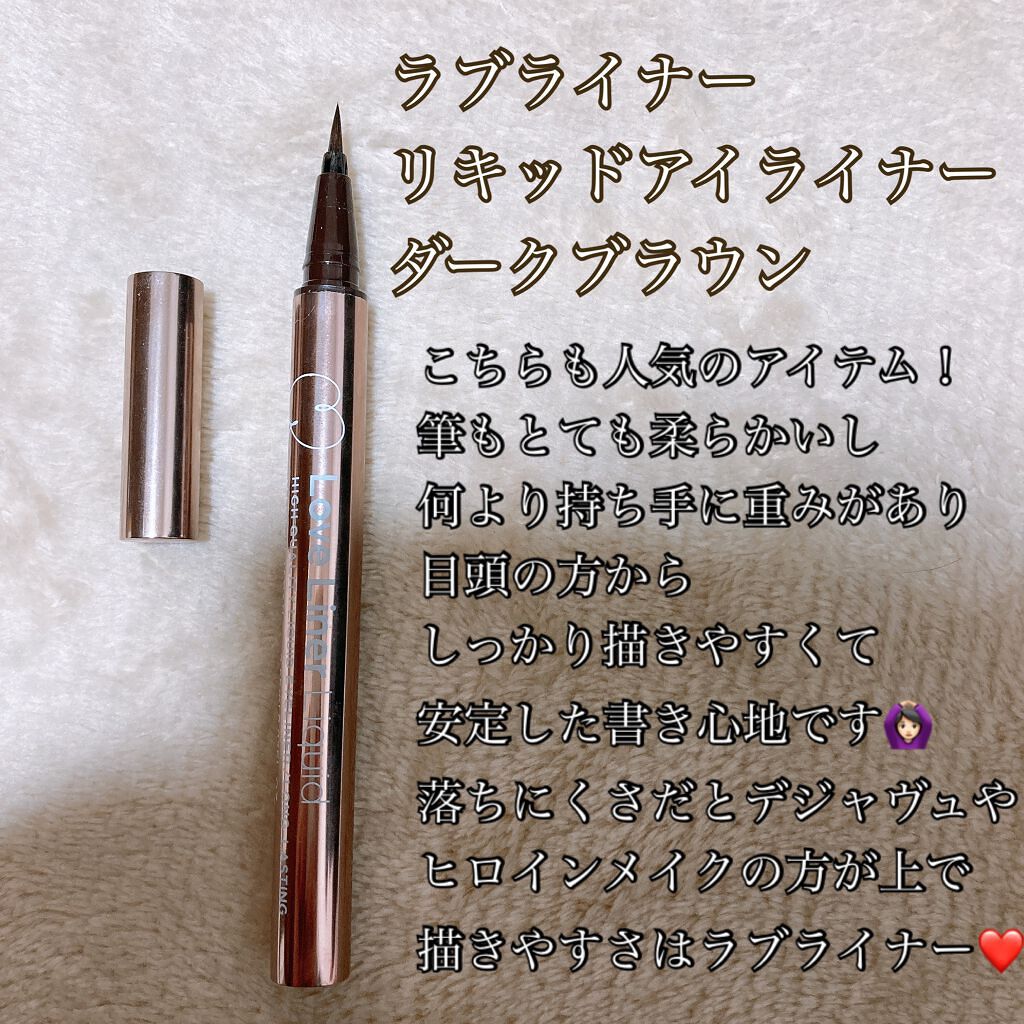 ラブライナー
リキッドアイライナー
ダークブラウン
こちらも人気のアイテム！
筆もとても柔らかいし
何より持ち手に重みがあり
目頭の方から
しっかり描きやすくて
安定した書き心地です🙆🏻‍♀️
落ちにくさだとデジャヴュや
ヒロインメイクの方が上で
描きやすさはラブライナー❤️
Love Liner Liquid
HIGH LASTING